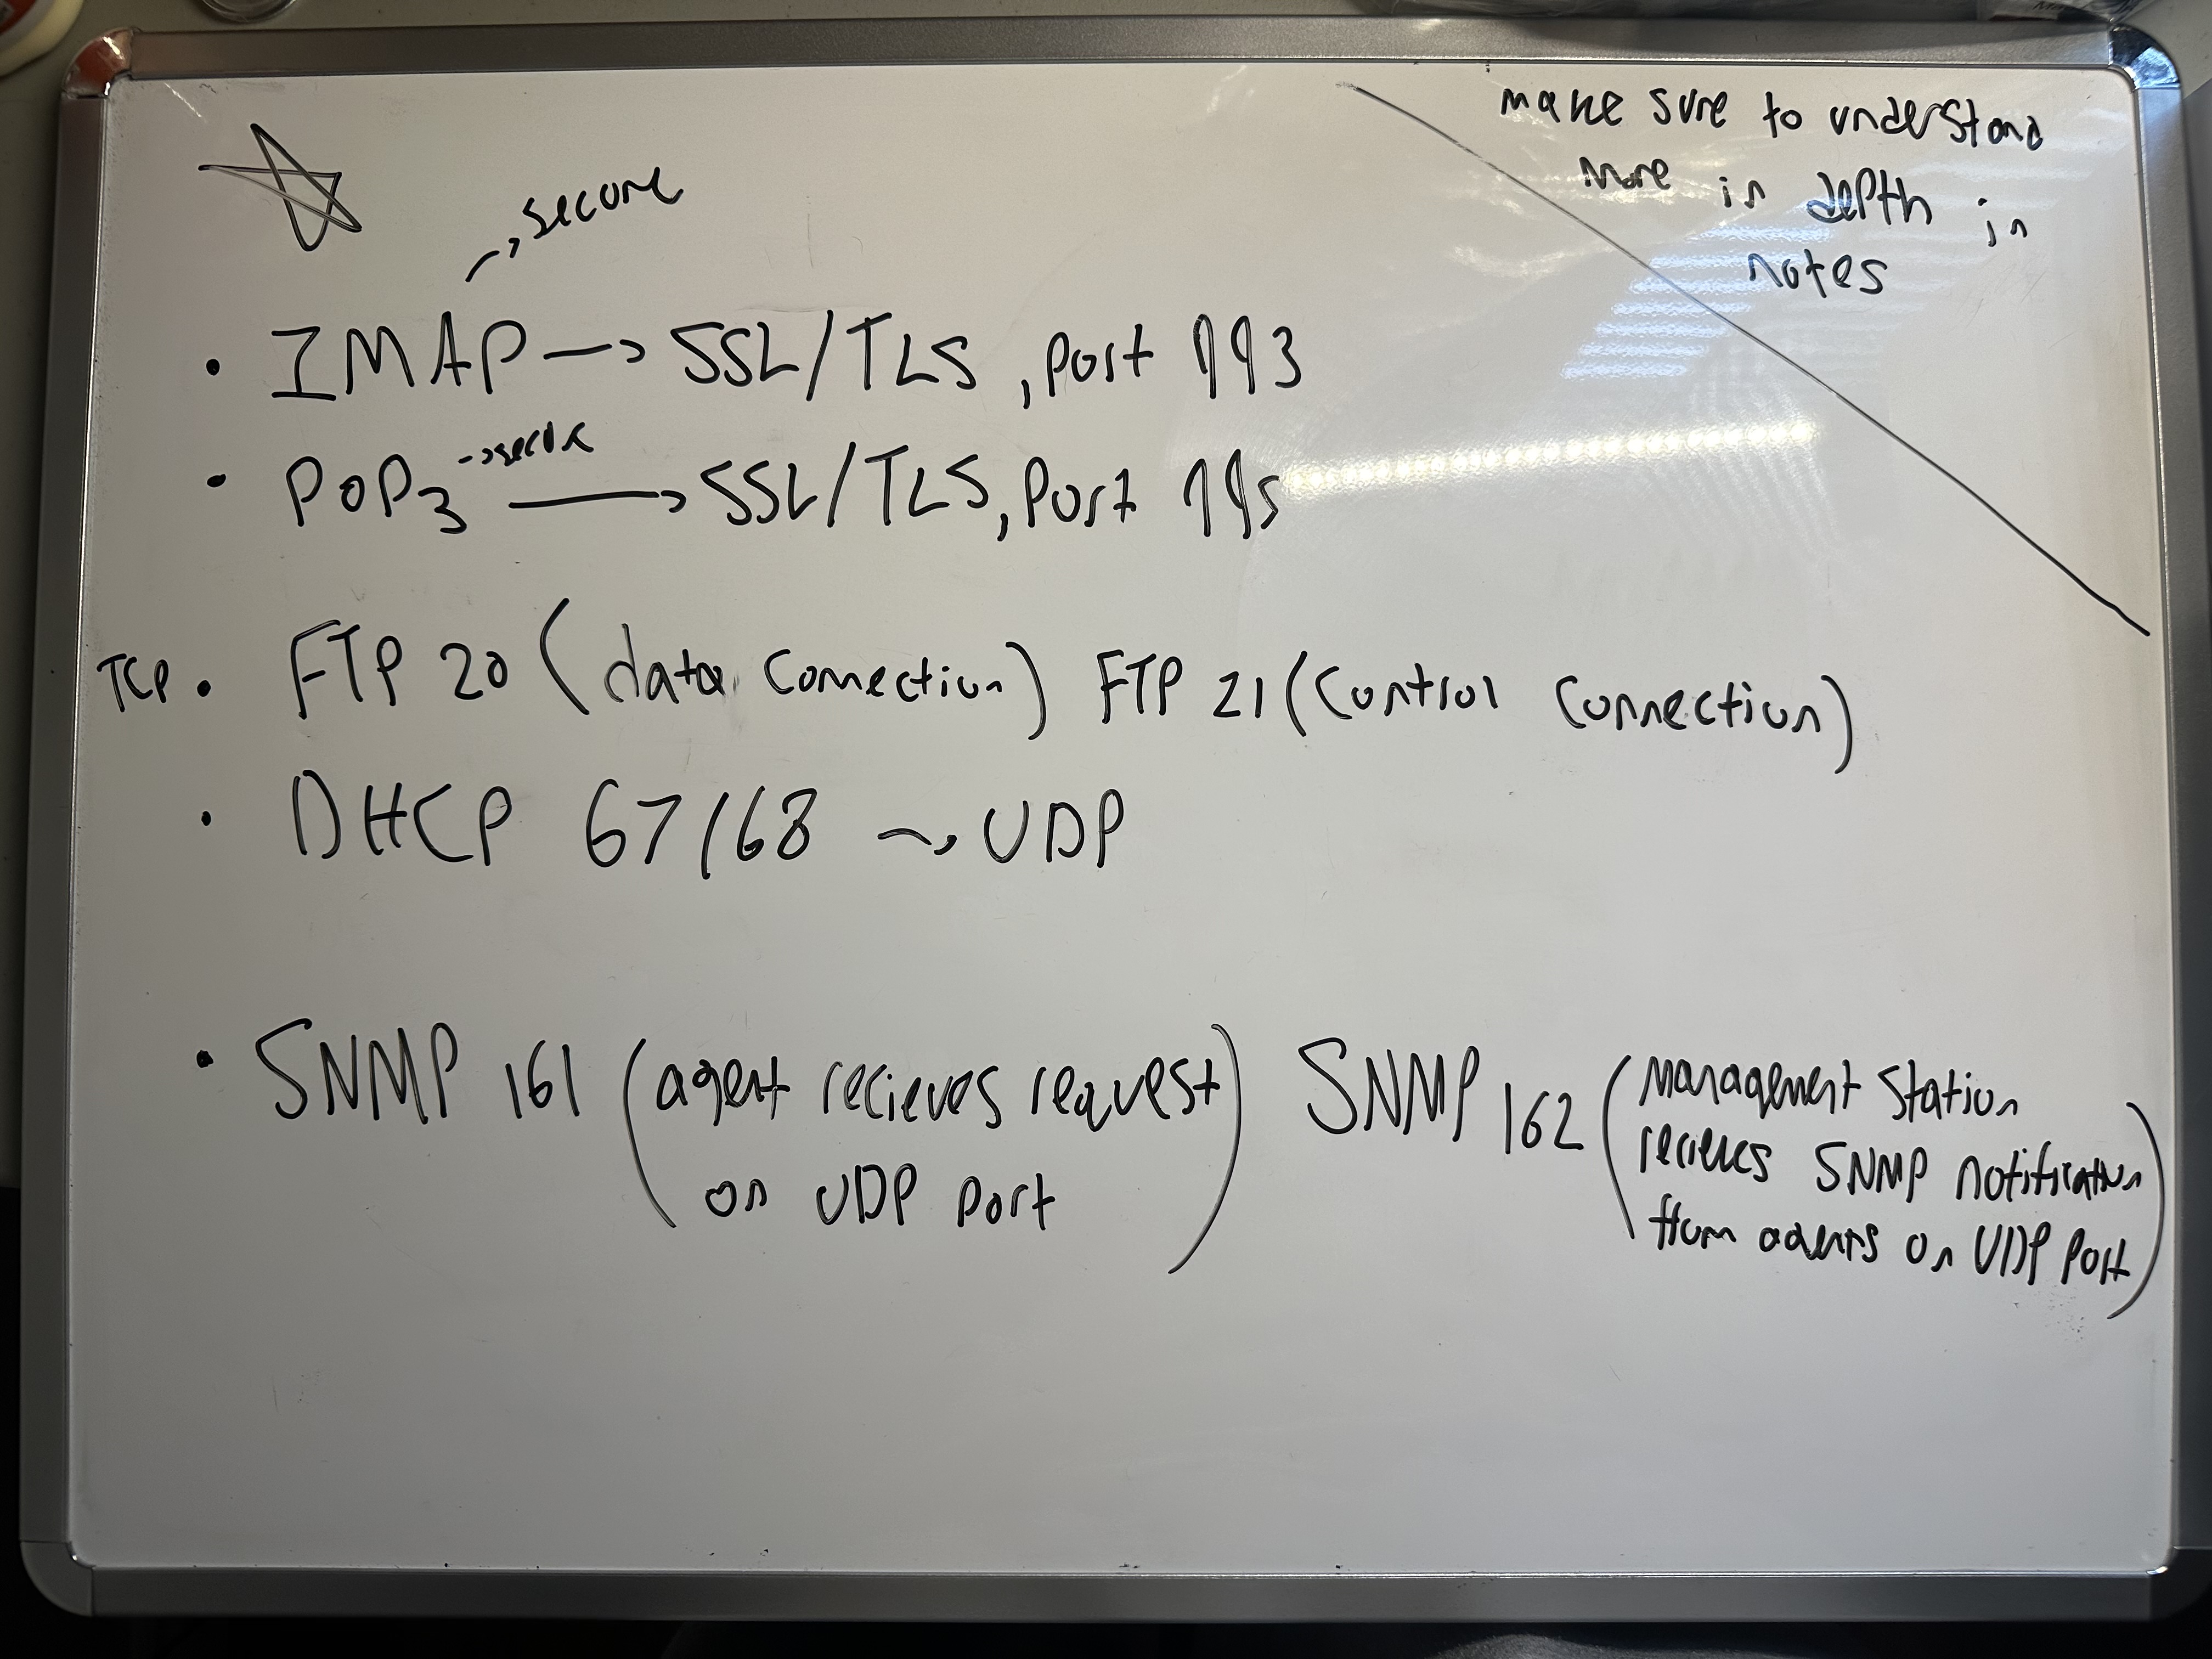 make sure to understand
more in depth in
notes
→ secure
• IMAP → SSL/TLS, port 993
→ secure
• POP3 → SSL/TLS, Port 995
TCP • FTP 20 (data connection) FTP 21 (control connection)
• DHCP 67/68 → UDP
• SNMP 161 (agent recieves request
on UDP port)
SNMP 162 (management station
recieves SNMP notification
from agents on UDP port)